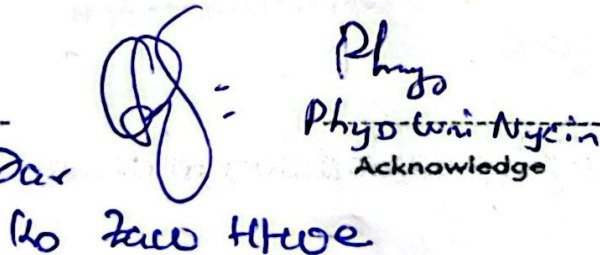 Phyo
Phyo Wai Nyein
Acknowledge
Dar
Ko Zaw Htwe